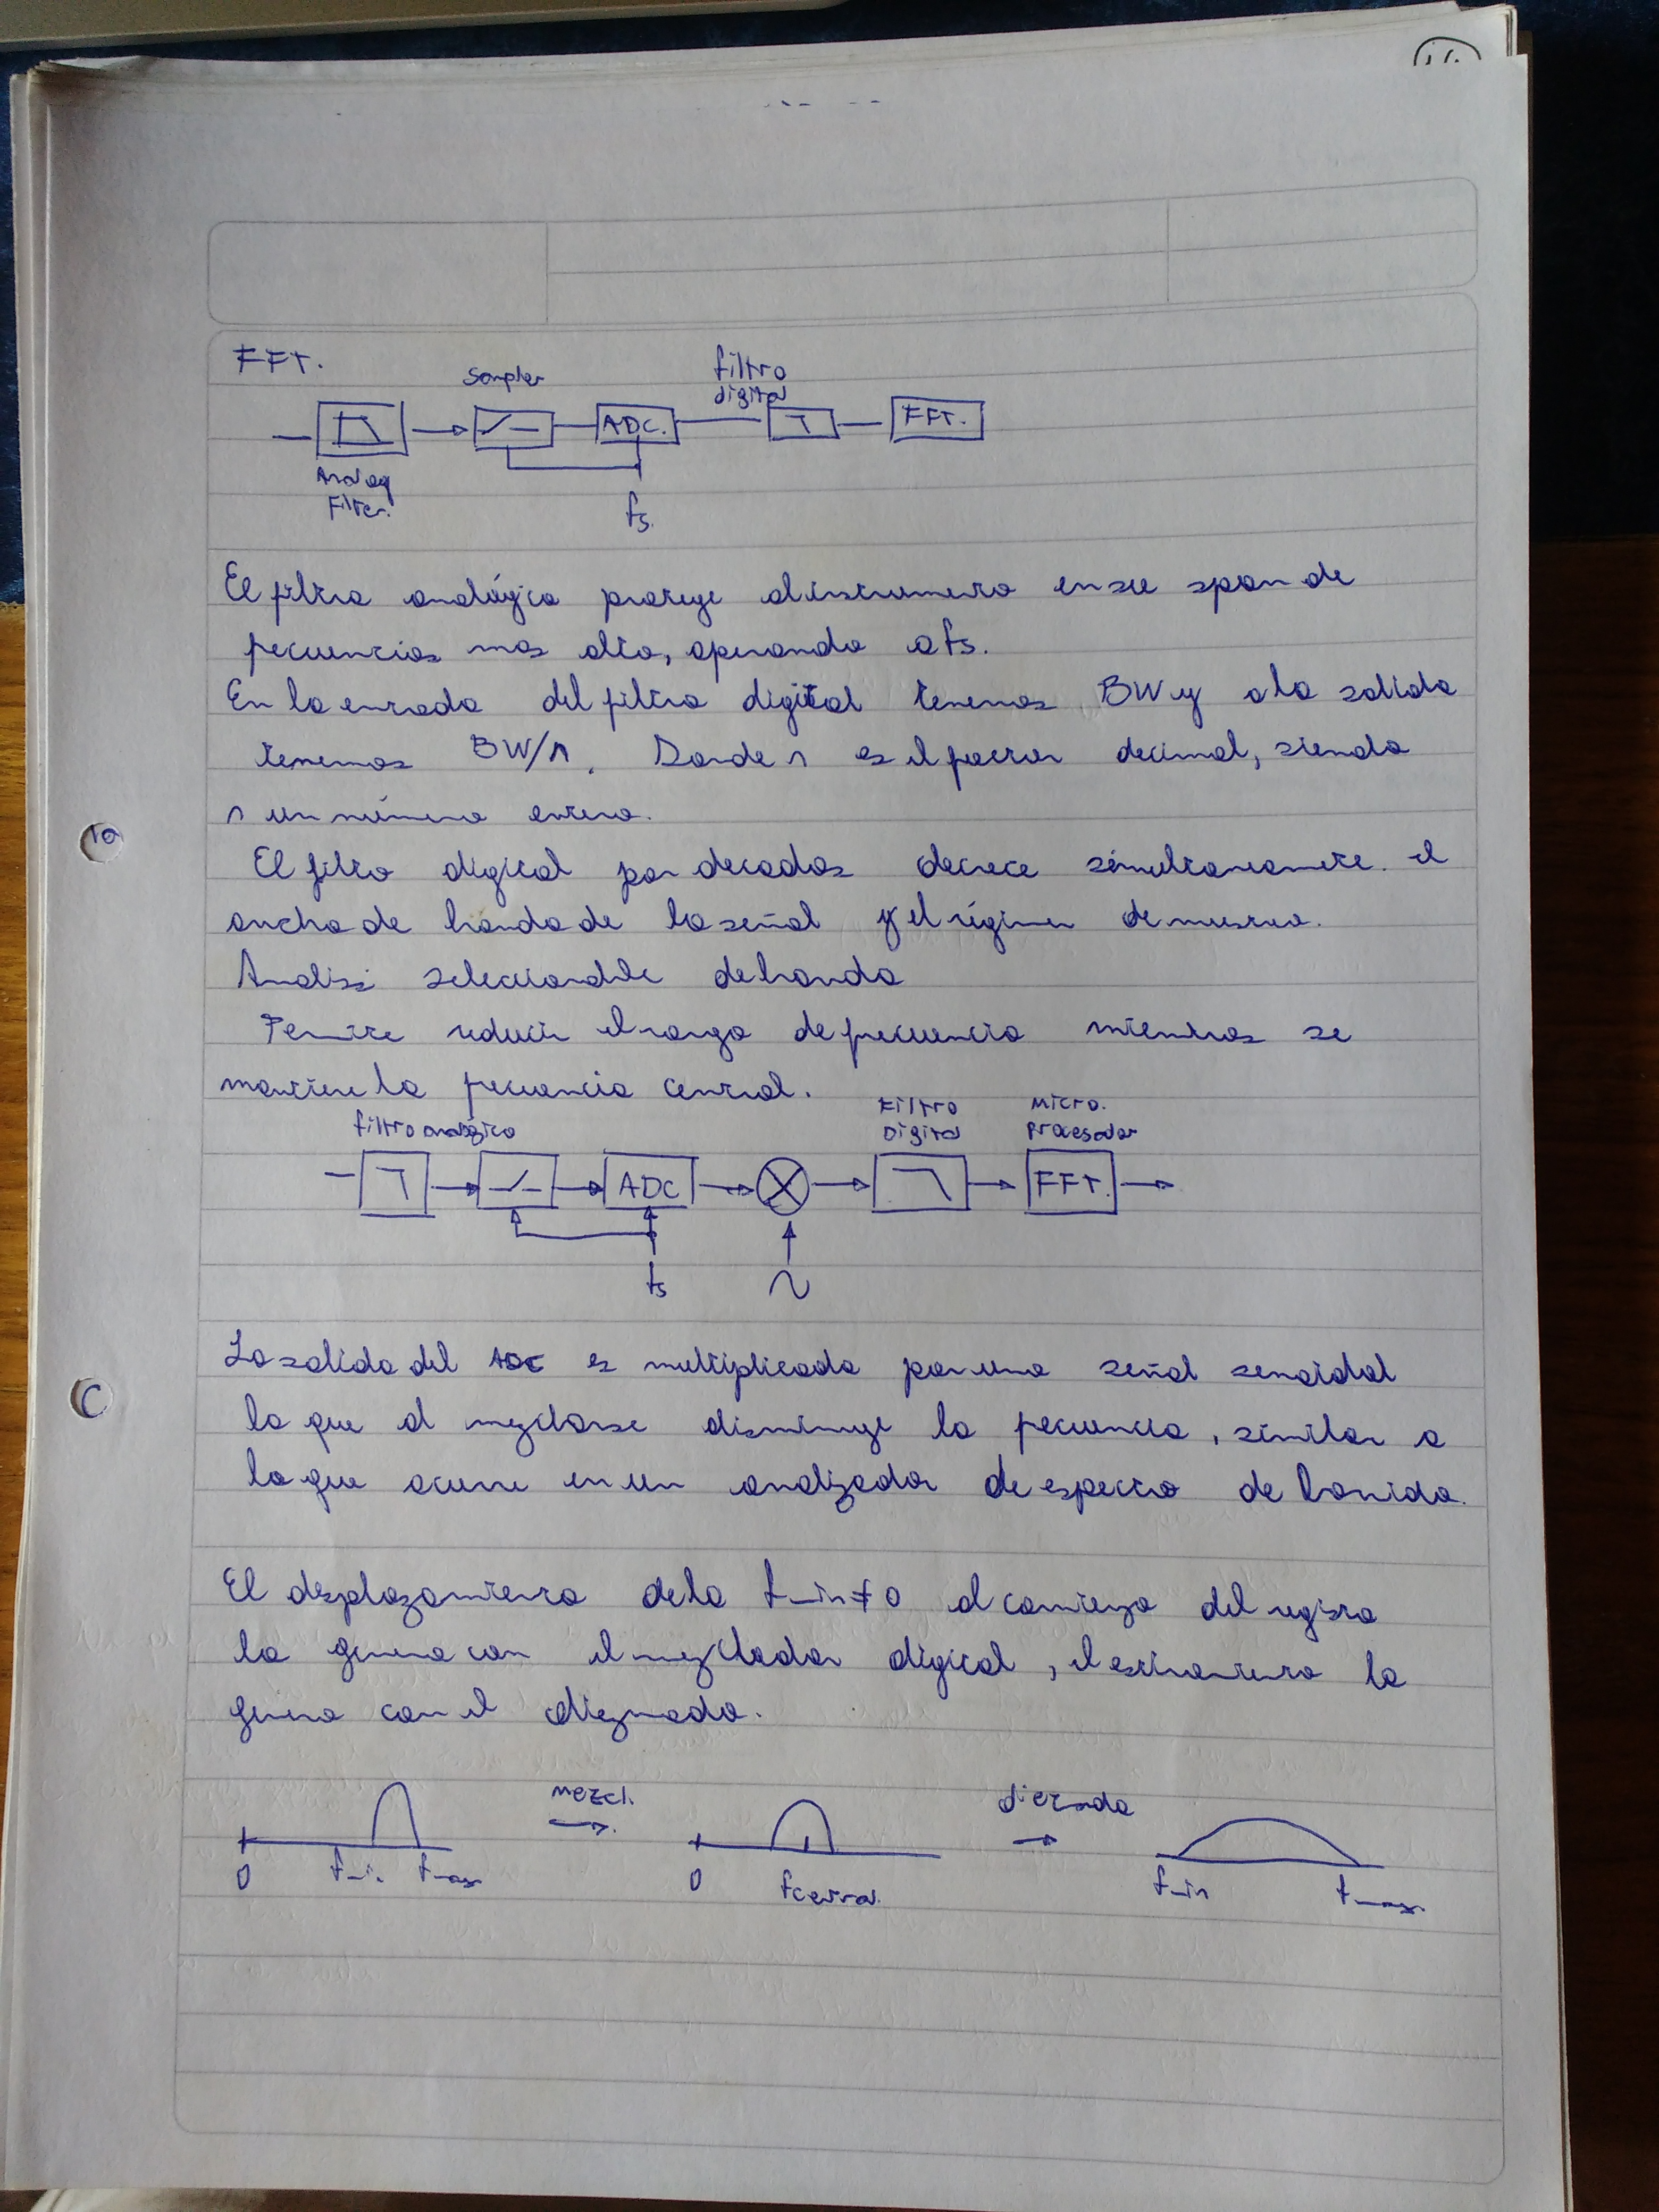 FFT.
Sampler
filtro
digital
ADC.
FFT.
Analog
Filter.
fs.
El filtro analógico protege al instrumento en su span de
frecuencias mas alto, operando a fs.
En la entrada del filtro digital tenemos BW y a la salida
tenemos BW/n. Donde n es el factor decimal, siendo
n un número entero.
El filtro digital por decadas decrece simultaneamete. el
ancho de banda de la señal y el régimen de muestreo.
Analisi seleccionable de banda
Permite reducir el rango de frecuencia mientras se
mantiene la frecuencia central.
filtro analógico
Filtro
Digital
Micro.
Procesador
ADC
FFT.
fs
La salida del ADC es multiplicada por una señal senoidal
lo que al mezclarse disminuye la frecuencia, similar a
lo que ocurre en un analizador de espectro de barrido.
El desplazamiento de la fmin≠0 al comienzo del registro
lo genera con el mezclador digital, el estiramiento lo
genera con el diezmado.
mezcl.
diezmado
0 fmin fmax
0 fcentral.
fmin fmax.
10
C